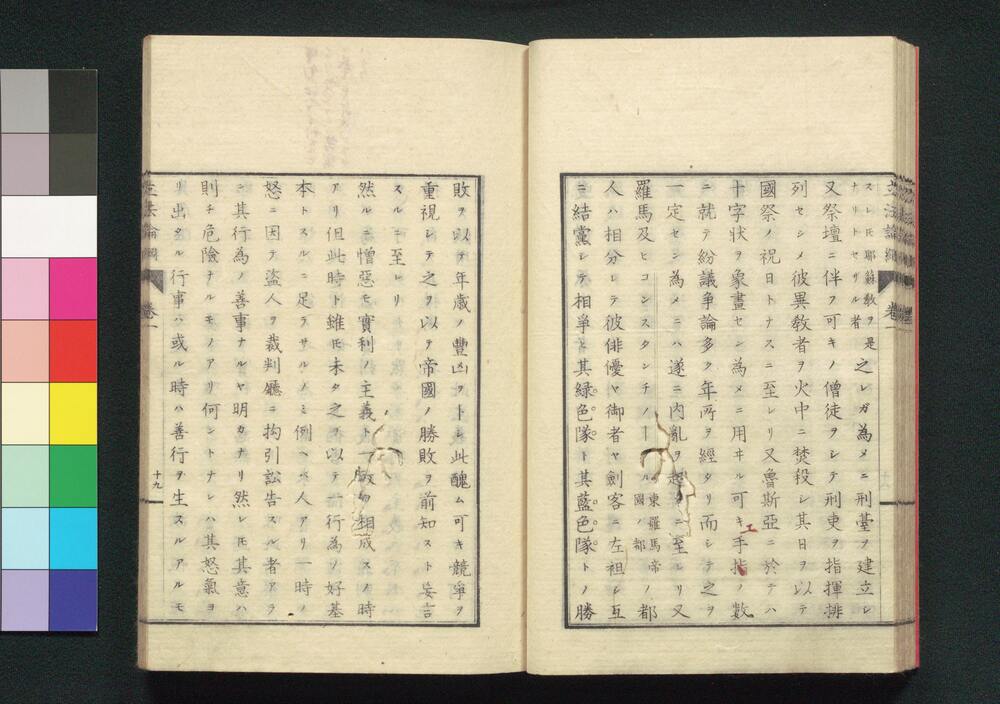 スレ氏耶蘇教ヲ是
ナリトセサル者之レガ為メニ刑臺ヲ建立シ
又祭壇ニ伴フ可キノ僧徒ヲシテ刑吏ヲ指揮排
列セシメ彼異教者ヲ火中ニ焚殺シ其日ヲ以テ
國祭ノ祝日トナスニ至レリ又魯斯亞ニ於テハ
十字状ヲ象畫セン為メニ用ヰル可キ手指ノ數
ニ就テ紛議争論多ク年所ヲ經タリ而シテ之ヲ
一定セン為メニハ遂ニ内亂ヲ起スニ至レリ又
羅馬及ヒコンスタンチノール東羅馬帝國ノ都ノ都
人ハ相分レテ彼俳優ヤ御者ヤ劍客ニ左袒シ互
ニ結黨シテ相爭ヒ其緑色隊ト其藍色隊トノ勝
敗ヲ以テ年歳ノ豐凶ヲトシ此醜ム可キ競爭ヲ
重視シテ之ヲ以テ帝國ノ勝敗ヲ前知スト妄言
スルニ至レリ
然ルニ憎惡モ實利ノ主義ト一致シ相成スノ時
アリ但此時ト雖モ未タ之ヲ以テ行為ノ好基
本トスルニ足ラサルノミ例ヘバ人アリ一時ノ
怒ニ因テ盜人ヲ裁判廳ニ拘引訟告スル者アラ
ニ其行為ノ善事ナルヤ明カナリ然レ氏其意ハ
則チ危險ナルモノアリ何ントナレハ其怒氣ヨ
リ出タル行事ハ或ル時ハ善行ヲ生スルアルモ
立法論綱
卷一
十九